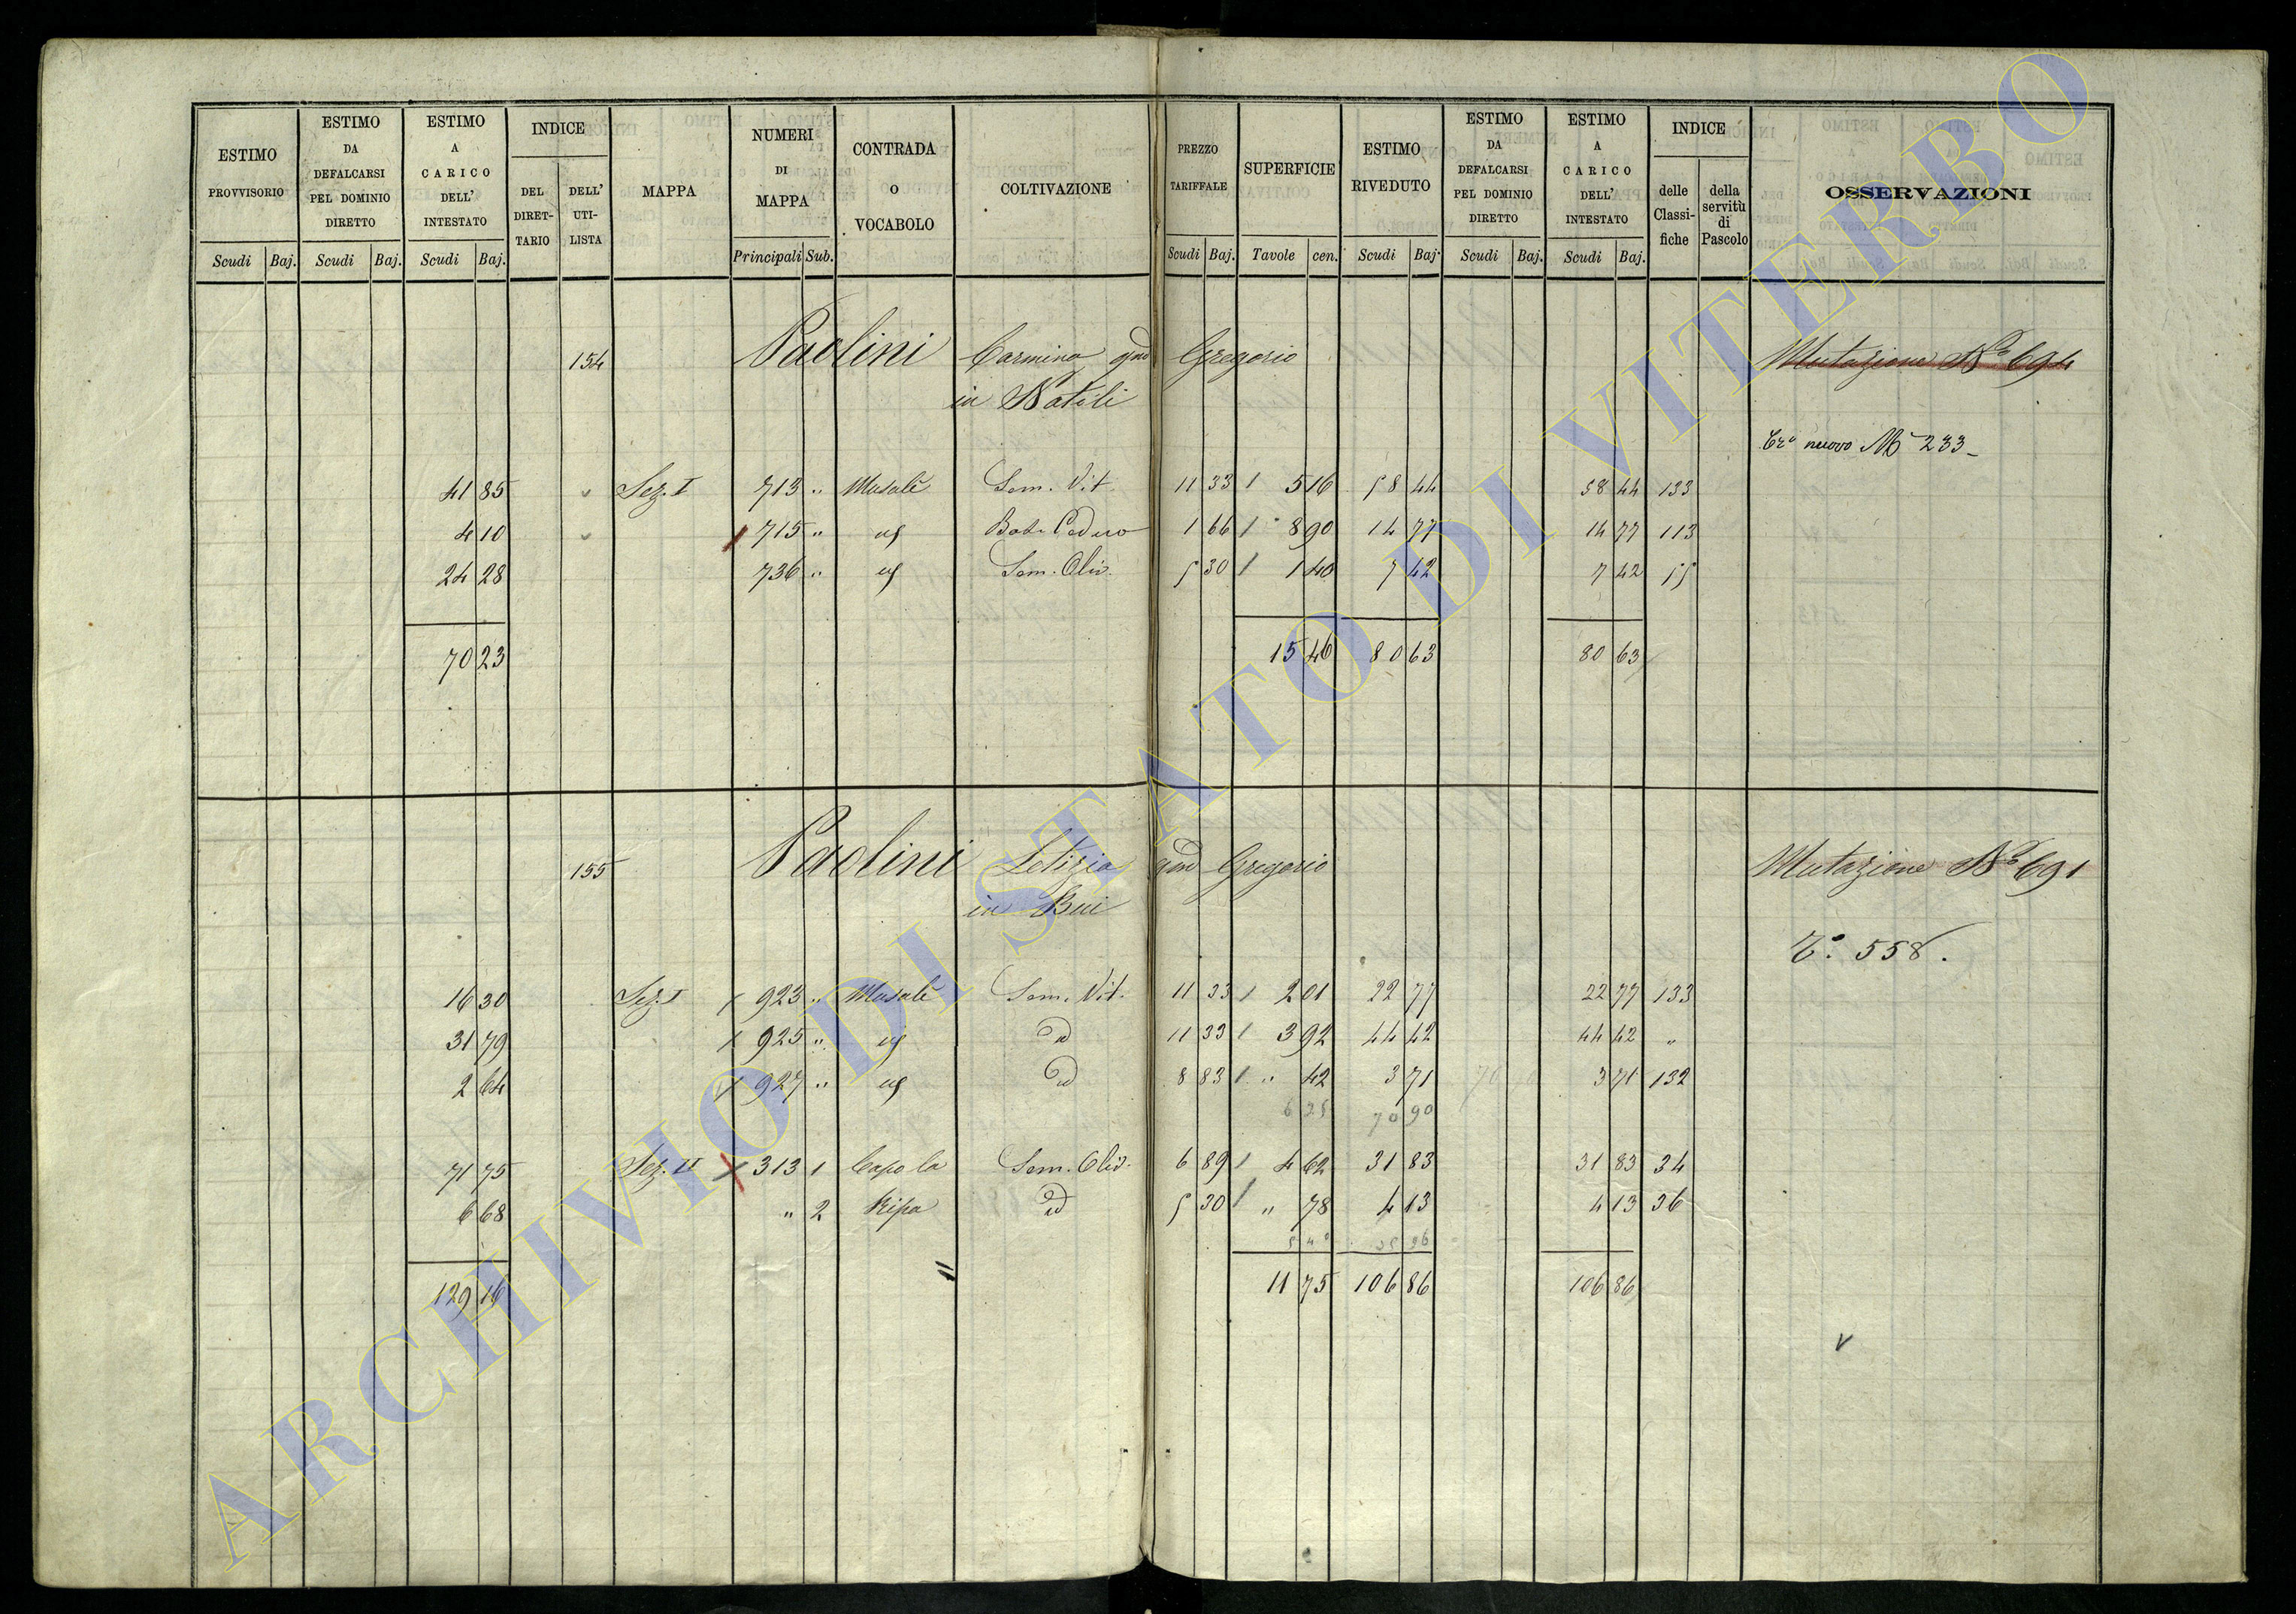 ESTIMO PROVVISORIO
ESTIMO DA DEFALCARSI PEL DOMINIO DIRETTO
ESTIMO A CARICO DELL' INTESTATO
INDICE
DEL DIRET- TARIO
DELL' UTI- LISTA
MAPPA
NUMERI DI MAPPA
CONTRADA O VOCABOLO
COLTIVAZIONE
PREZZO TARIFFALE
SUPERFICIE
ESTIMO RIVEDUTO
ESTIMO DA DEFALCARSI PEL DOMINIO DIRETTO
ESTIMO A CARICO DELL' INTESTATO
INDICE
delle Classi- fiche
della servitù di Pascolo
OSSERVAZIONI
Scudi Baj. Scudi Baj. Scudi Baj. Principali Sub. Scudi Baj. Tavole cen. Scudi Baj. Scudi Baj. Scudi Baj.
154 Paolini Carmina qm Gregorio Mutazione No 694
in Natili
nuovo No 233
41 85 Sez. I 713 " Masale Sem. Vit. 11 33 5 16 58 44 58 44 133
4 10 715 " id Bosc. Ceduo 1 66 8 90 14 77 14 77 113
24 28 736 " id Sem. Oliv. 5 30 1 40 7 42 7 42 55
70 23 15 46 80 63 80 63
155 Paolini Letizia qm Gregorio Mutazione No 691
in Bui
To. 558.
16 30 Sez. I 923 " Masale Sem. Vit. 11 33 2 01 22 77 22 77 133
31 79 925 " id id 11 33 3 92 44 42 44 42 "
2 64 927 " id id 8 83 " 42 3 71 3 71 132
6 25 70 90
71 75 Sez. II 313 1 Capo la Sem. Oliv. 6 89 4 62 31 83 31 83 34
6 68 " 2 Ripa id 5 30 " 78 4 13 4 13 36
5 40 35 96
129 16 11 75 106 86 106 86
ARCHIVIO DI STATO DI VITERBO